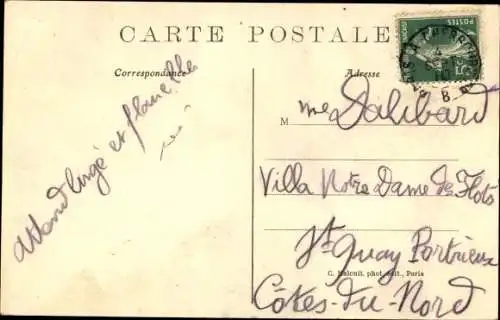 CARTE POSTALE
Correspondance
Adresse
POSTES
5c
attend linge et flanelle
M me Dalibard
Villa Notre Dame des Flots
St Quay Portrieux
C. Malcuit, phot.-édit., Paris
Côtes-du-Nord